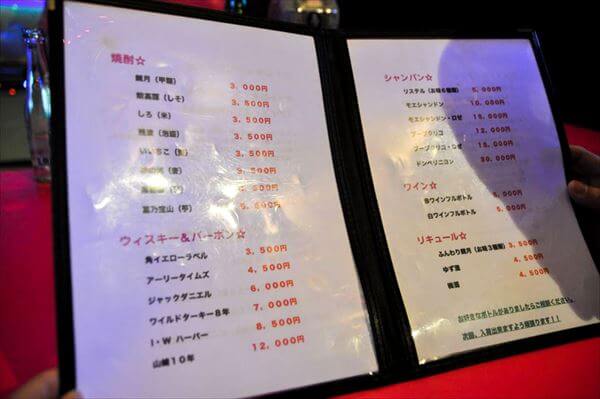 焼酎☆
鏡月（甲類） 3,000円
鍛高譚（しそ） 3,500円
しろ（米） 3,500円
残波（泡盛） 3,500円
いいちこ（麦） 3,500円
（麦） 3,500円
5,500円
富乃宝山（芋） 5,500円
ウィスキー＆バーボン☆
角イエローラベル 3,500円
アーリータイムズ 4,500円
ジャックダニエル 6,000円
ワイルドターキー8年 7,000円
I・W ハーパー 8,500円
山崎10年 12,000円
シャンパン☆
リステル（お味6種類） 5,000円
モエシャンドン 10,000円
モエシャンドン・ロゼ 15,000円
ブーブクリコ 12,000円
ブーブクリコ・ロゼ 15,000円
ドンペリニヨン 30,000円
ワイン☆
赤ワインフルボトル 5,000円
白ワインフルボトル 5,000円
リキュール☆
ふんわり鏡月（お味3種類） 3,500円
ゆず酒 4,500円
梅酒 4,500円
お好きなボトルがありましたらご相談ください。
次回、入荷出来ますよう頑張ります！！